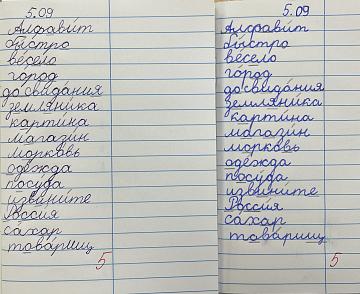 5.09
Алфави́т
бы́стро
ве́село
го́род
до свида́ния
земляни́ка
карти́на
магази́н
морко́вь
оде́жда
посу́да
извини́те
Росси́я
са́хар
това́рищ
5
5.09
Алфави́т
бы́стро
ве́село
го́род
до свида́ния
земляни́ка
карти́на
магази́н
морковь
оде́жда
посу́да
извини́те
Росси́я
са́хар
това́рищ
5